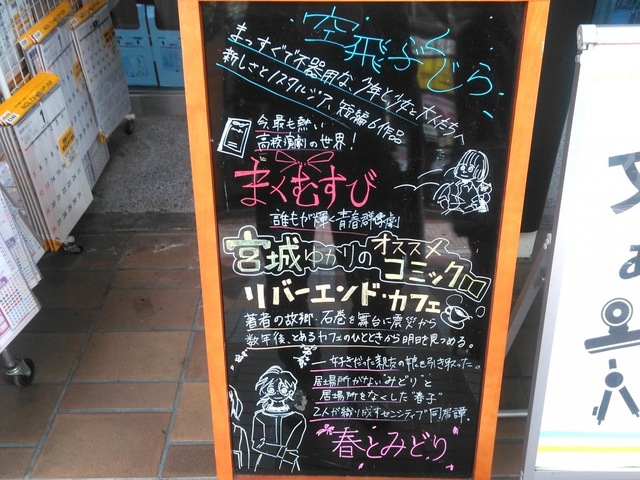 空飛ぶくじら
まっすぐで不器用な少年と少女と大人たちへ
新しさとノスタルジア、短編6作品
今、最も熱い
高校演劇の世界!
まくむすび
誰もが輝く青春群像劇
宮城ゆかりのオススメ
コミック
リバーエンド・カフェ
著者の故郷・石巻を舞台に震災から
数年後、とあるカフェのひとときから明日を見つめる。
一 好きだった親友の娘を引き取った。
居場所がないみどりと
居場所をなくした"春子"
2人が織り成すセンシティブ同居譚.
春とみどり
文